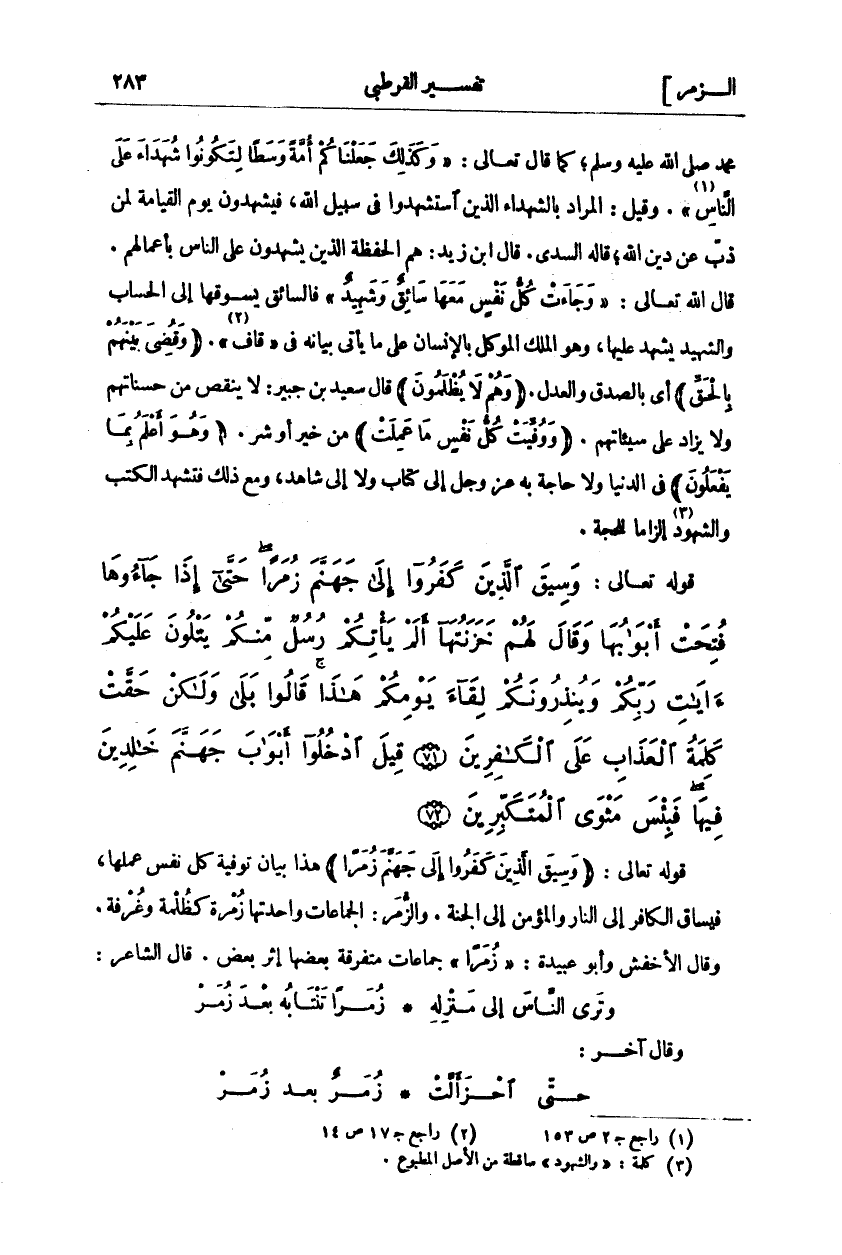 الـــزمر ]
تفســـير القرطبي
٢٨٣
محمد صلى الله عليه وسلم؛ كما قال تعـالى : « وَكَذَلِكَ جَعَلْنَاكُمْ أُمَّةً وَسَطًا لِتَكُونُوا شُهَدَاءَ عَلَى
النَّاسِ(١) » . وقيل : المراد بالشهداء الذين آستشهدوا فى سبيل الله، فيشهدون يوم القيامة لمن
ذبّ عن دين الله؛ قاله السدى. قال ابن زيد: هم الحفظة الذين يشهدون على الناس بأعمالهم .
قال الله تعـالى : « وَجَاءَتْ كُلُّ نَفْسٍ مَعَهَا سَائِقٌ وَشَهِيدٌ » فالسائق يسـوقها إلى الحساب
والشهيد يشهد عليها، وهو الملك الموكل بالإنسان على ما يأتى بيانه فى « قاف(٢) ». ﴿ وَقُضِىَ بَيْنَهُمْ
بِالْحَقِّ ﴾ أى بالصدق والعدل. ﴿ وَهُمْ لَا يُظْلَمُونَ ﴾ قال سعيد بن جبير: لا ينقص من حسناتهم
ولا يزاد على سيئاتهم . ﴿ وَوُفِّيَتْ كُلُّ نَفْسٍ مَا عَمِلَتْ ﴾ من خير أو شر . ﴿ وَهُـوَ أَعْلَمُ بِمَـا
يَفْعَلُونَ ﴾ فى الدنيا ولا حاجة به عز وجل إلى كتاب ولا إلى شاهد، ومع ذلك فتشهد الكتب
والشهود(٣) إلزاما للحجة .
قوله تعـالى : وَسِيقَ ٱلَّذِينَ كَفَرُوٓا إِلَىٰ جَهَنَّمَ زُمَرًاۖ حَتَّىٰٓ إِذَا جَآءُوهَا
فُتِحَتْ أَبْوَٰبُهَا وَقَالَ لَهُمْ خَزَنَتُهَآ أَلَمْ يَأْتِكُمْ رُسُلٌ مِّنكُمْ يَتْلُونَ عَلَيْكُمْ
ءَايَٰتِ رَبِّكُمْ وَيُنذِرُونَكُمْ لِقَآءَ يَوْمِكُمْ هَٰذَاۚ قَالُوا بَلَىٰ وَلَٰكِنْ حَقَّتْ
كَلِمَةُ ٱلْعَذَابِ عَلَى ٱلْكَٰفِرِينَ ﴿٧١﴾ قِيلَ ٱدْخُلُوٓا أَبْوَٰبَ جَهَنَّمَ خَٰلِدِينَ
فِيهَاۖ فَبِئْسَ مَثْوَى ٱلْمُتَكَبِّرِينَ ﴿٧٢﴾
قوله تعالى : ﴿ وَسِيقَ الَّذِينَ كَفَرُوا إِلَى جَهَنَّمَ زُمَرًا ﴾ هذا بيان توفية كل نفس عملها،
فيساق الكافر إلى النار والمؤمن إلى الجنة . والزُّمَر : الجماعات واحدتها زُمْرة كظُلْمة وغُرْفة .
وقال الأخفش وأبو عبيدة : « زُمَرًا » جماعات متفرقة بعضها إثر بعض . قال الشاعر :
وتَرى النَّـاسَ إلى مَـنْزِلِهِ * زُمَــرًا تَنْتَابُه بَعْـدَ زُمَــرْ
وقال آخـــر :
حـتّى ٱحْــزَأَلَّتْ * زُمَــرٌ بعـد زُمَــرْ
(١) راجع جـ ٢ ص ١٥٣
(٢) راجع جـ ١٧ ص ١٤
(٣) كلمة : « والشهود » ساقطة من الأصل المطبوع .